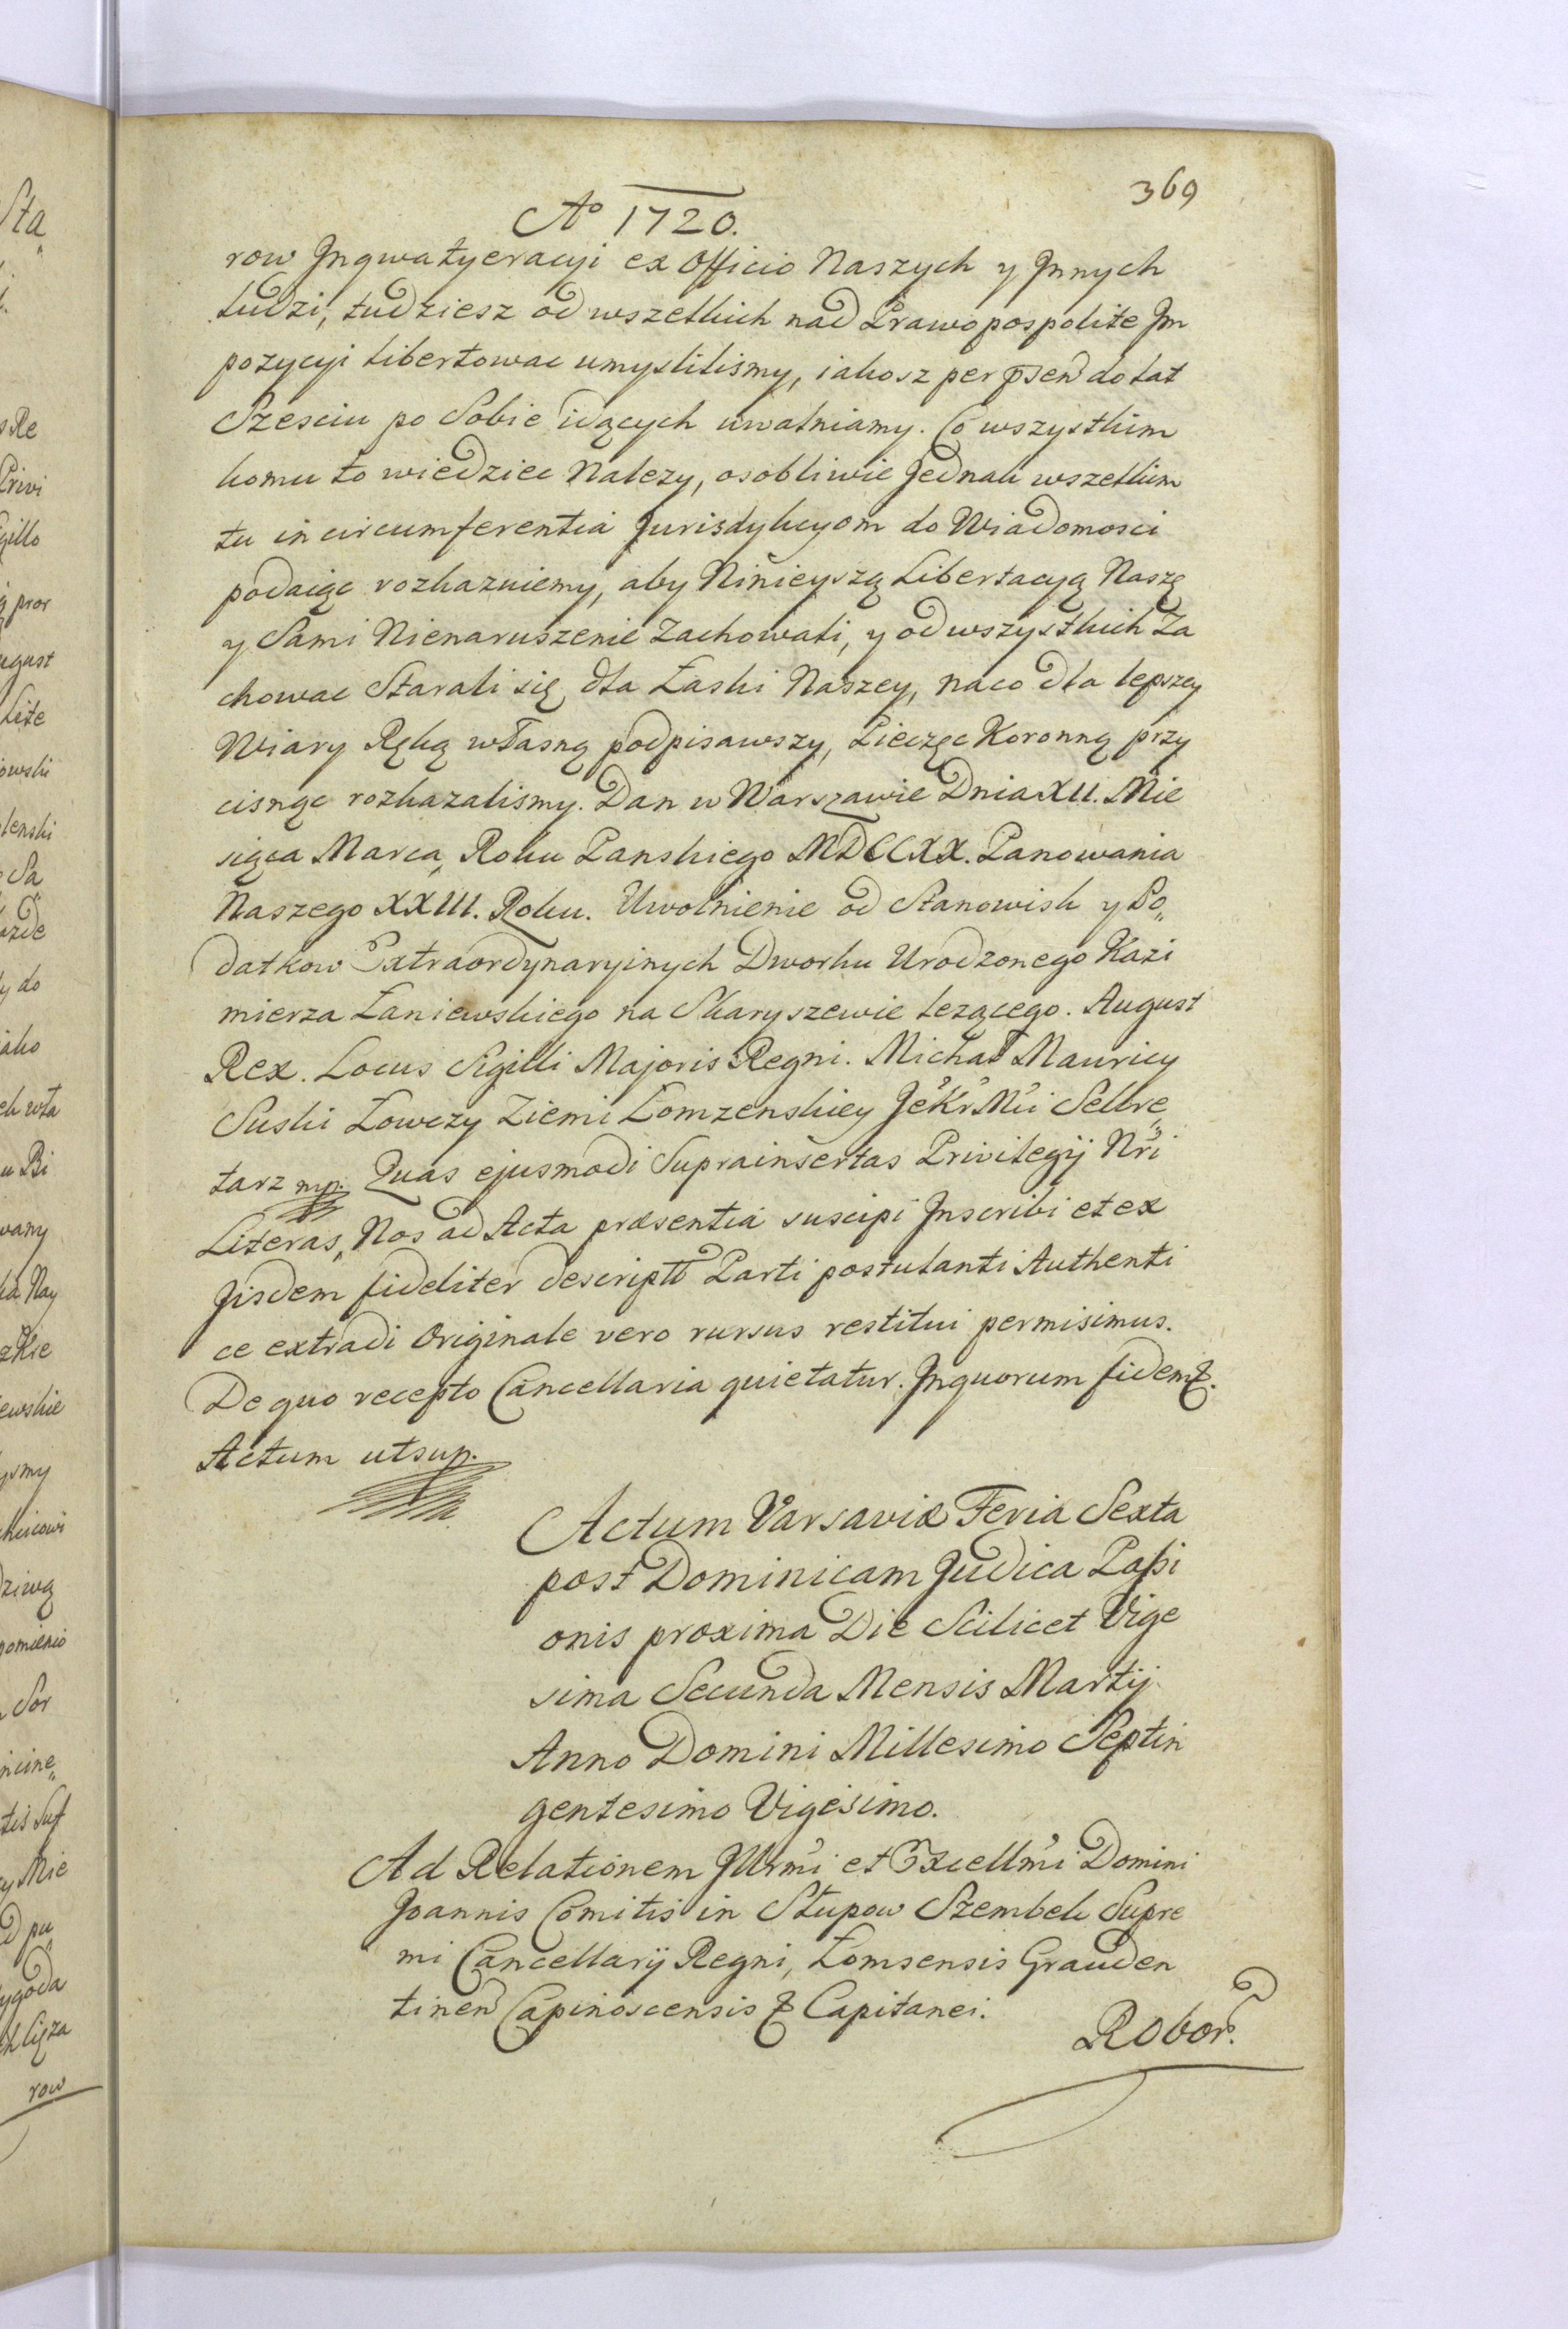 369
Aº 1720.
row Ingwatyeracyi ex Officio Naszych y Innych
ludzi, tudziesz od wszelkich nad Prawo pospolite Im
pozycyi libertowac umyslilismy, iakosz per pñsen do lat
Szesciu po Sobie idących uwalniamy. Co wszystkim
komu to wiedziec Nalezy, osobliwie Jednak wszelkim
tu in circumferentia Jurisdykcyom do Wiadomosci
podaiąc rozkazuiemy, aby Ninieyszą Libertacyą Naszę
y Sami Nienaruszenie Zachowali, y od wszystkich Za
chowac Starali się, dla Łaski Naszey, na co dla lepszey
Wiary Ręką własną podpisawszy, Pieczęc Koronną przy
cisnąc rozkazalismy. Dan w Warszawie Dnia XII. Mie
siąca Marca, Roku Panskiego MDCCXX. Panowania
Naszego XXIII. Roku. Uwolnienie od Stanowisk y Po„
datkow Extraordynaryinych Dworku Urodzonego Kazi
mierza Łaniewskiego na Skaryszewie lezącego. August
Rex. Locus Sigilli Majoris Regni. Michał Mauricy
Suski Łowczy Ziemi Łomzenskiey JeKr Mci Sekre„
tarz mp. Quas ejusmodi Suprainsertas Privilegij Nri
Literas, Nos ad Acta præsentia suscipi Inscribi et ex
Iisdem fideliter descripti Parti postulanti Authenti
ce extradi Originale vero rursus restitui permisimus.
De quo recepto Cancellaria quietatur. In quorum fidem &.
Actum ut sup.
Actum Varsaviæ Feria Sexta
post Dominicam Judica Paßi
onis proxima Die Scilicet Vige
sima Secunda Mensis Martij
Anno Domini Millesimo Septin
gentesimo Vigesimo.
Ad Relationem Illrmi et Excellmi Domini
Joannis Comitis in Słupow Szembek Supre
mi Cancellarij Regni, Łomsensis Grauden
tinen Capinoscensis & Capitanei.
Robor.